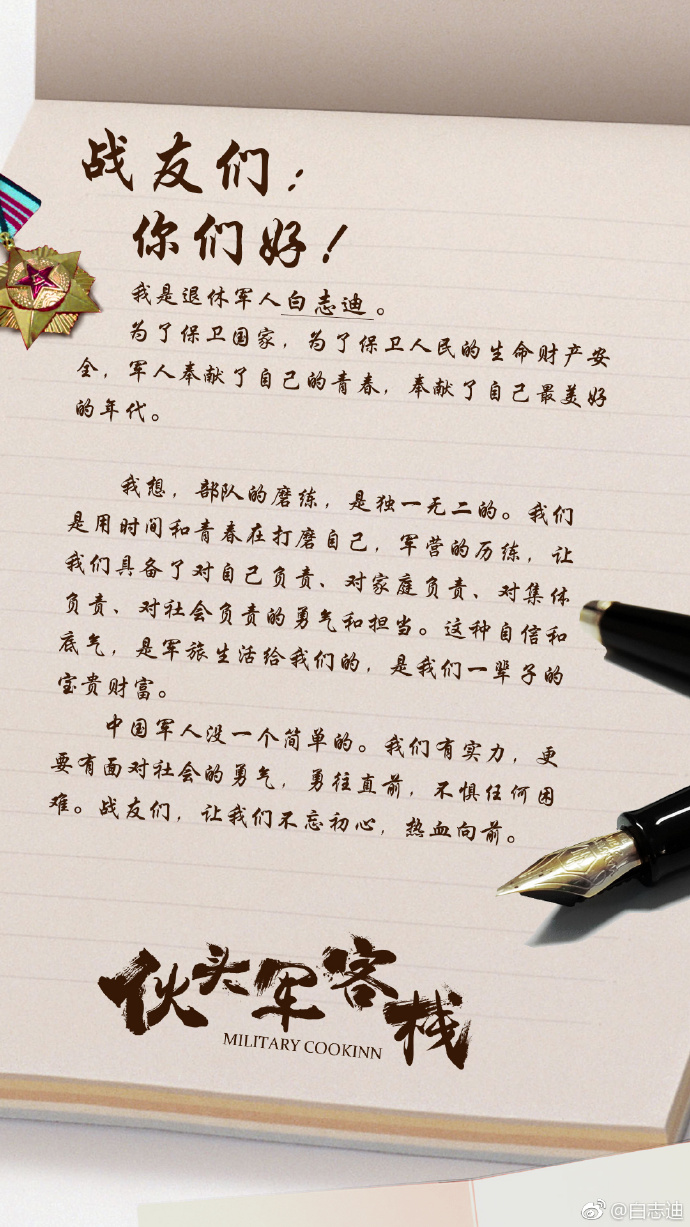 战友们：
你们好！
我是退休军人白志迪。
为了保卫国家，为了保卫人民的生命财产安
全，军人奉献了自己的青春，奉献了自己最美好
的年代。
我想，部队的磨练，是独一无二的。我们
是用时间和青春在打磨自己，军营的历练，让
我们具备了对自己负责、对家庭负责、对集体
负责、对社会负责的勇气和担当。这种自信和
底气，是军旅生活给我们的，是我们一辈子的
宝贵财富。
中国军人没一个简单的。我们有实力，更
要有面对社会的勇气，勇往直前，不惧任何困
难。战友们，让我们不忘初心，热血向前。
伙头军客栈
MILITARY COOKINN
@白志迪